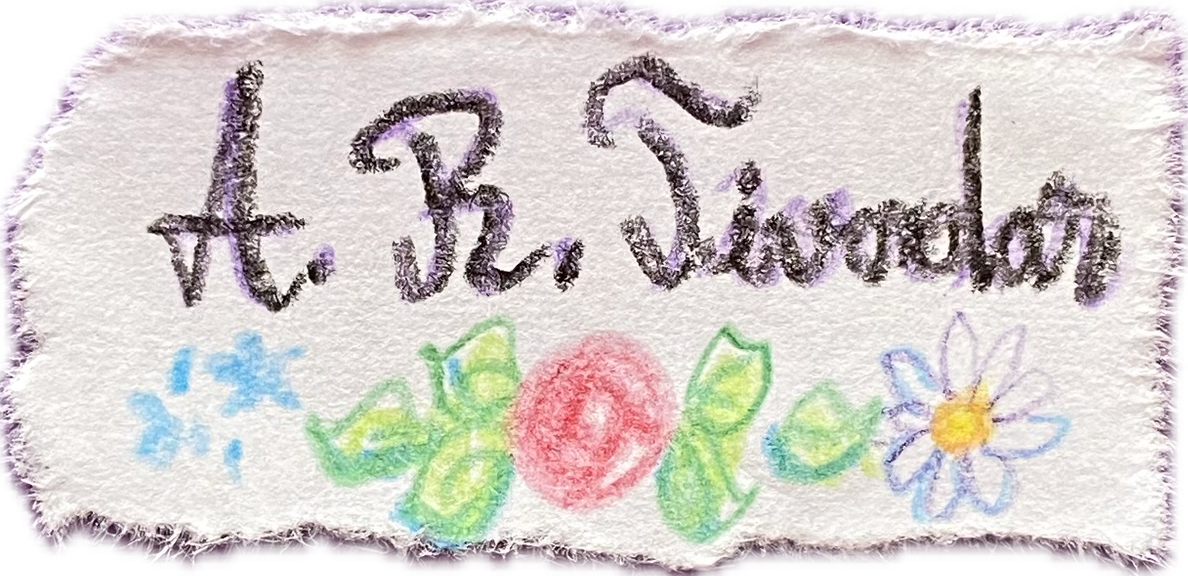 A. R. Tivodar